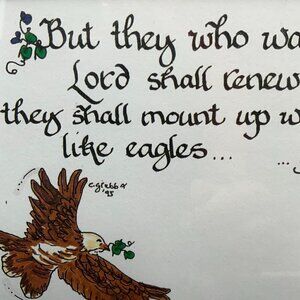 But they who wa
Lord shall renew
they shall mount up w
like eagles...